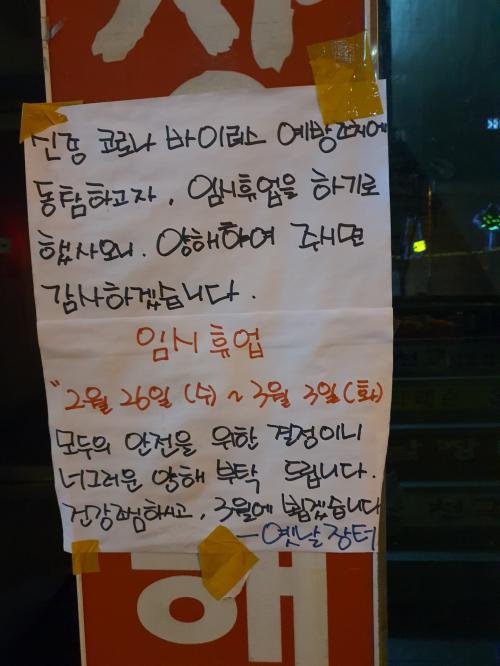 신종 코로나 바이러스 예방조치에
동탐하고자, 임시휴업을 하기로
했사오니. 양해하여 주시면
감사하겠습니다.
임시 휴업
"2월 26일 (수) ~ 3월 3일(화)
모두의 안전을 위한 결정이니
너그러운 양해 부탁 드립니다.
건강조심하시고, 3월에 뵙겠습니다
-옛날장터
해